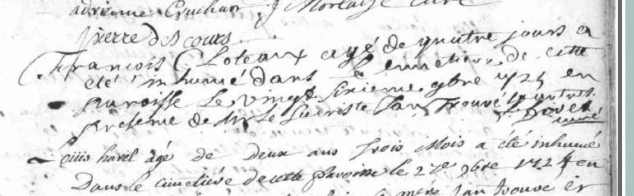 adrienne Cruchon J Mortaise curé
pierre discours
François Cloteaux agé de quatre jours a
été inhumé dans le cimetiere de cette
paroisse le vingt sixieme 9bre 1724 en
presence de Mr le Jan Trouvé &autres.
curé
Louis havel agé de deux ans Trois Mois a été inhumé
Dans le cimetière de cette paroisse le 27e 9bre 1724 en
Jan